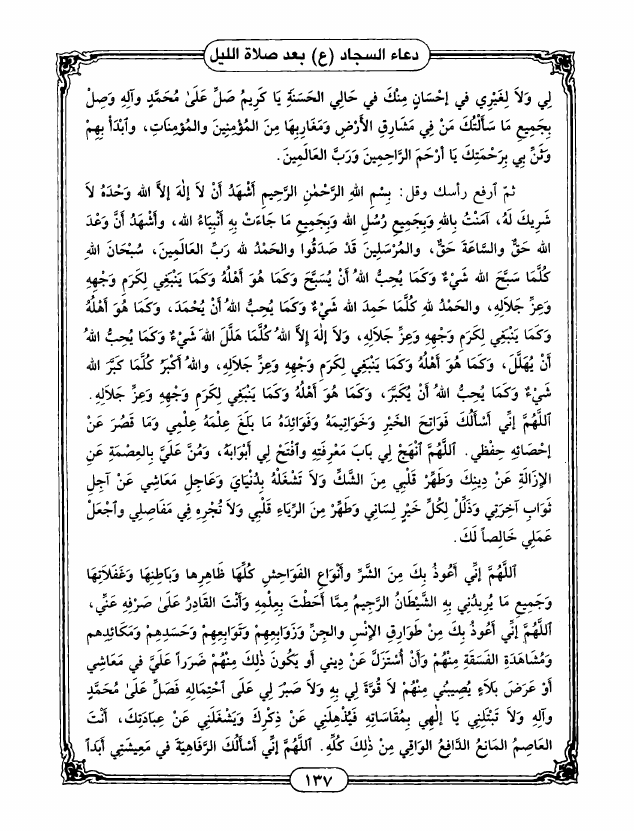 دعاء السجاد (ع) بعد صلاة الليل
لِي وَلاَ لِغَيْرِي في إحْسَانٍ مِنْكَ في حَالِي الحَسَنَةِ يَا كَرِيمُ صَلِّ عَلَىٰ مُحَمَّدٍ وآلِهِ وَصِلْ
بِجَمِيعِ مَا سَأَلْتُكَ مَنْ فِي مَشَارِقِ الأَرْضِ وَمَغَارِبِهَا مِنَ المُؤْمِنِينَ والمُؤْمِنَاتِ، وٱبْدَأْ بِهِمْ
وَثَنِّ بِي بِرَحْمَتِكَ يَا أَرْحَمَ الرَّاحِمِينَ وَرَبَّ العَالَمِينَ.
ثمّ ٱرفع رأسك وقل: بِسْمِ اللهِ الرَّحْمٰنِ الرَّحِيمِ أَشْهَدُ أَنْ لاَ إلٰهَ إلاَّ الله وَحْدَهُ لاَ
شَرِيكَ لَهُ، آمَنْتُ بِاللهِ وَبِجَمِيعِ رُسُلِ الله وَبِجَمِيعِ مَا جَاءَتْ بِهِ أَنْبِيَاءُ الله، وأَشْهَدُ أَنَّ وَعْدَ
الله حَقٌّ والسَّاعَةَ حَقٌّ، والمُرْسَلِينَ قَدْ صَدَقُوا والحَمْدُ لله رَبِّ العَالَمِينَ، سُبْحَانَ اللهِ
كُلَّمَا سَبَّحَ الله شَيْءٌ وَكَمَا يُحِبُّ اللهُ أَنْ يُسَبَّحَ وَكَمَا هُوَ أَهْلُهُ وَكَمَا يَنْبَغِي لِكَرَمِ وَجْهِهِ
وَعِزِّ جَلاَلِهِ، والحَمْدُ للهِ كُلَّمَا حَمِدَ الله شَيْءٌ وَكَمَا يُحِبُّ اللهُ أَنْ يُحْمَدَ، وَكَمَا هُوَ أَهْلُهُ
وَكَمَا يَنْبَغِي لِكَرَمِ وَجْهِهِ وَعِزِّ جَلاَلِهِ، وَلاَ إلٰهَ إلاَّ اللهُ كُلَّمَا هَلَّلَ اللهَ شَيْءٌ وَكَمَا يُحِبُّ اللهُ
أَنْ يُهَلَّلَ، وَكَمَا هُوَ أَهْلُهُ وَكَمَا يَنْبَغِي لِكَرَمِ وَجْهِهِ وَعِزِّ جَلاَلِهِ، واللهُ أَكْبَرُ كُلَّمَا كَبَّرَ الله
شَيْءٌ وَكَمَا يُحِبُّ اللهُ أَنْ يُكَبَّرَ، وَكَمَا هُوَ أَهْلُهُ وَكَمَا يَنْبَغِي لِكَرَمِ وَجْهِهِ وَعِزِّ جَلاَلِهِ.
اَللَّهُمَّ إنِّي أَسْأَلُكَ فَوَاتِحَ الخَيْرِ وَخَوَاتِيمَهُ وَفَوَائِدَهُ مَا بَلَغَ عِلْمَهُ عِلْمِي وَمَا قَصُرَ عَنْ
إحْصَائِهِ حِفْظِي. اَللَّهُمَّ ٱنْهَجْ لِي بَابَ مَعْرِفَتِهِ وٱفْتَحْ لِي أَبْوَابَهُ، وَمُنَّ عَلَيَّ بِالعِصْمَةِ عَنِ
الإزَالَةِ عَنْ دِينِكَ وَطَهِّرْ قَلْبِي مِنَ الشَّكِّ وَلاَ تَشْغَلْهُ بِدُنْيَايَ وَعَاجِلِ مَعَاشِي عَنْ آجِلِ
ثَوَابِ آخِرَتِي وَذَلِّلْ لِكُلِّ خَيْرٍ لِسَانِي وَطَهِّرْ مِنَ الرِّيَاءِ قَلْبِي وَلاَ تُجْرِهِ فِي مَفَاصِلِي وٱجْعَلْ
عَمَلِي خَالِصاً لَكَ.
اَللَّهُمَّ إنِّي أَعُوذُ بِكَ مِنَ الشَّرِّ وأَنْوَاعِ الفَوَاحِشِ كُلِّهَا ظَاهِرِهَا وَبَاطِنِهَا وَغَفَلاَتِهَا
وَجَمِيعِ مَا يُرِيدُنِي بِهِ الشَّيْطَانُ الرَّجِيمُ مِمَّا أَحَطْتَ بِعِلْمِهِ وَأَنْتَ القَادِرُ عَلَىٰ صَرْفِهِ عَنِّي،
اَللَّهُمَّ إنِّي أَعُوذُ بِكَ مِنْ طَوَارِقِ الإنْسِ والجِنِّ وَزَوَابِعِهِمْ وَتَوَابِعِهِمْ وَحَسَدِهِمْ وَمَكَائِدِهِم
وَمُشَاهَدَةِ الفَسَقَةِ مِنْهُمْ وَأَنْ أُسْتَزَلَّ عَنْ دِينِي أَو يَكُونَ ذٰلِكَ مِنْهُمْ ضَرَراً عَلَيَّ في مَعَاشِي
أَوْ عَرَضَ بَلاَءٍ يُصِيبُنِي مِنْهُمْ لاَ قُوَّةَ لِي بِهِ وَلاَ صَبْرَ لِي عَلَى ٱحْتِمَالِهِ فَصَلِّ عَلَىٰ مُحَمَّدٍ
وآلِهِ وَلاَ تَبْتَلِنِي يَا إلٰهِي بِمُقَاسَاتِهِ فَيُذْهِلَنِي عَنْ ذِكْرِكَ وَيَشْغَلَنِي عَنْ عِبَادَتِكَ، أَنْتَ
العَاصِمُ المَانِعُ الدَّافِعُ الوَاقِي مِنْ ذٰلِكَ كُلِّهِ. اَللَّهُمَّ إنِّي أَسْأَلُكَ الرَّفَاهِيَةَ في مَعِيشَتِي أَبَداً
١٣٧